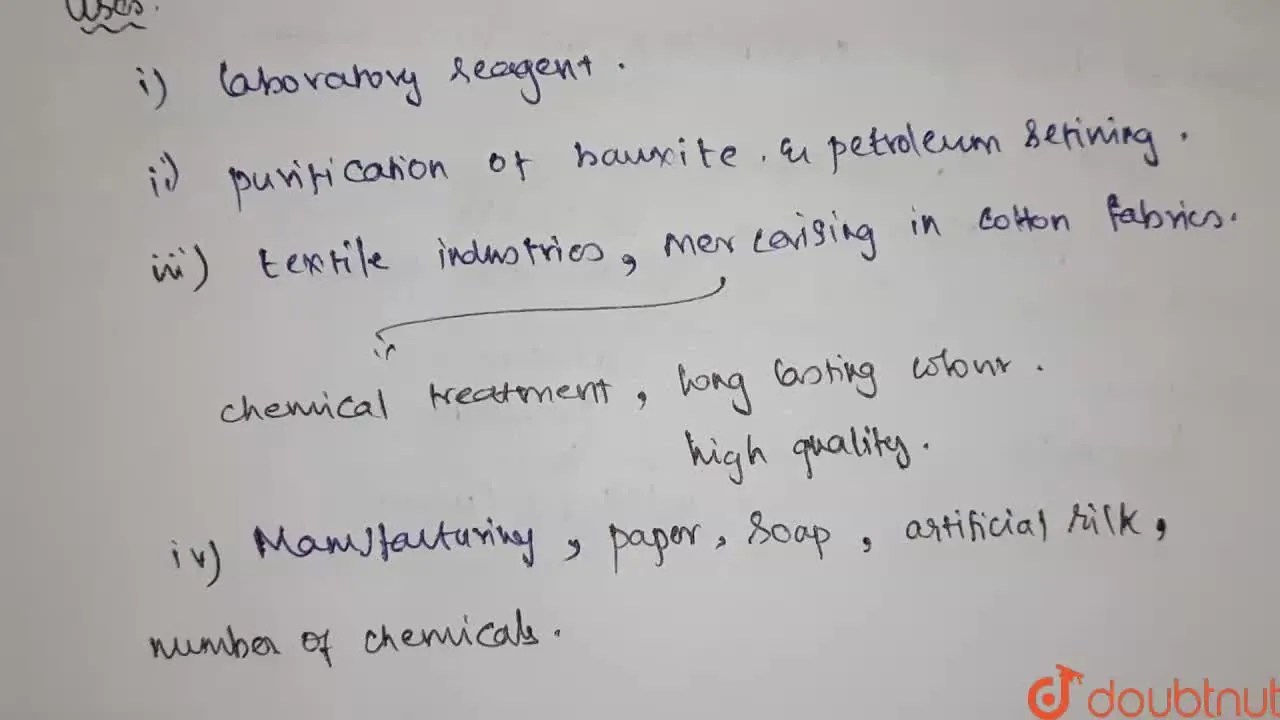 Uses.
i) Laboratory reagent.
ii) purification of bauxite. & petroleum refining.
iii) textile industries, mercerising in cotton fabrics.
chemical treatment, long lasting colour.
high quality.
iv) Manufacturing, paper, soap, artificial silk,
number of chemicals.
doubtnut